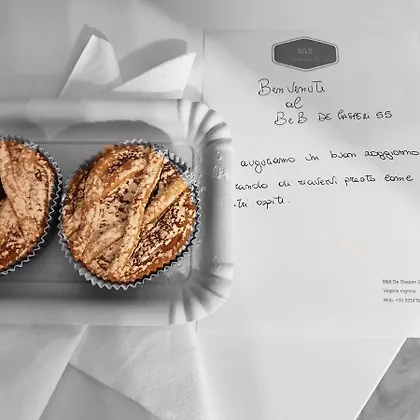 B&B
Benvenuti
al
B&B DE GASPERI 55
auguriamo un buon soggiorno
rando di riavervi presto come
tri ospiti.
B&B De Gasperi
Virginia Vignola
Mob. +39